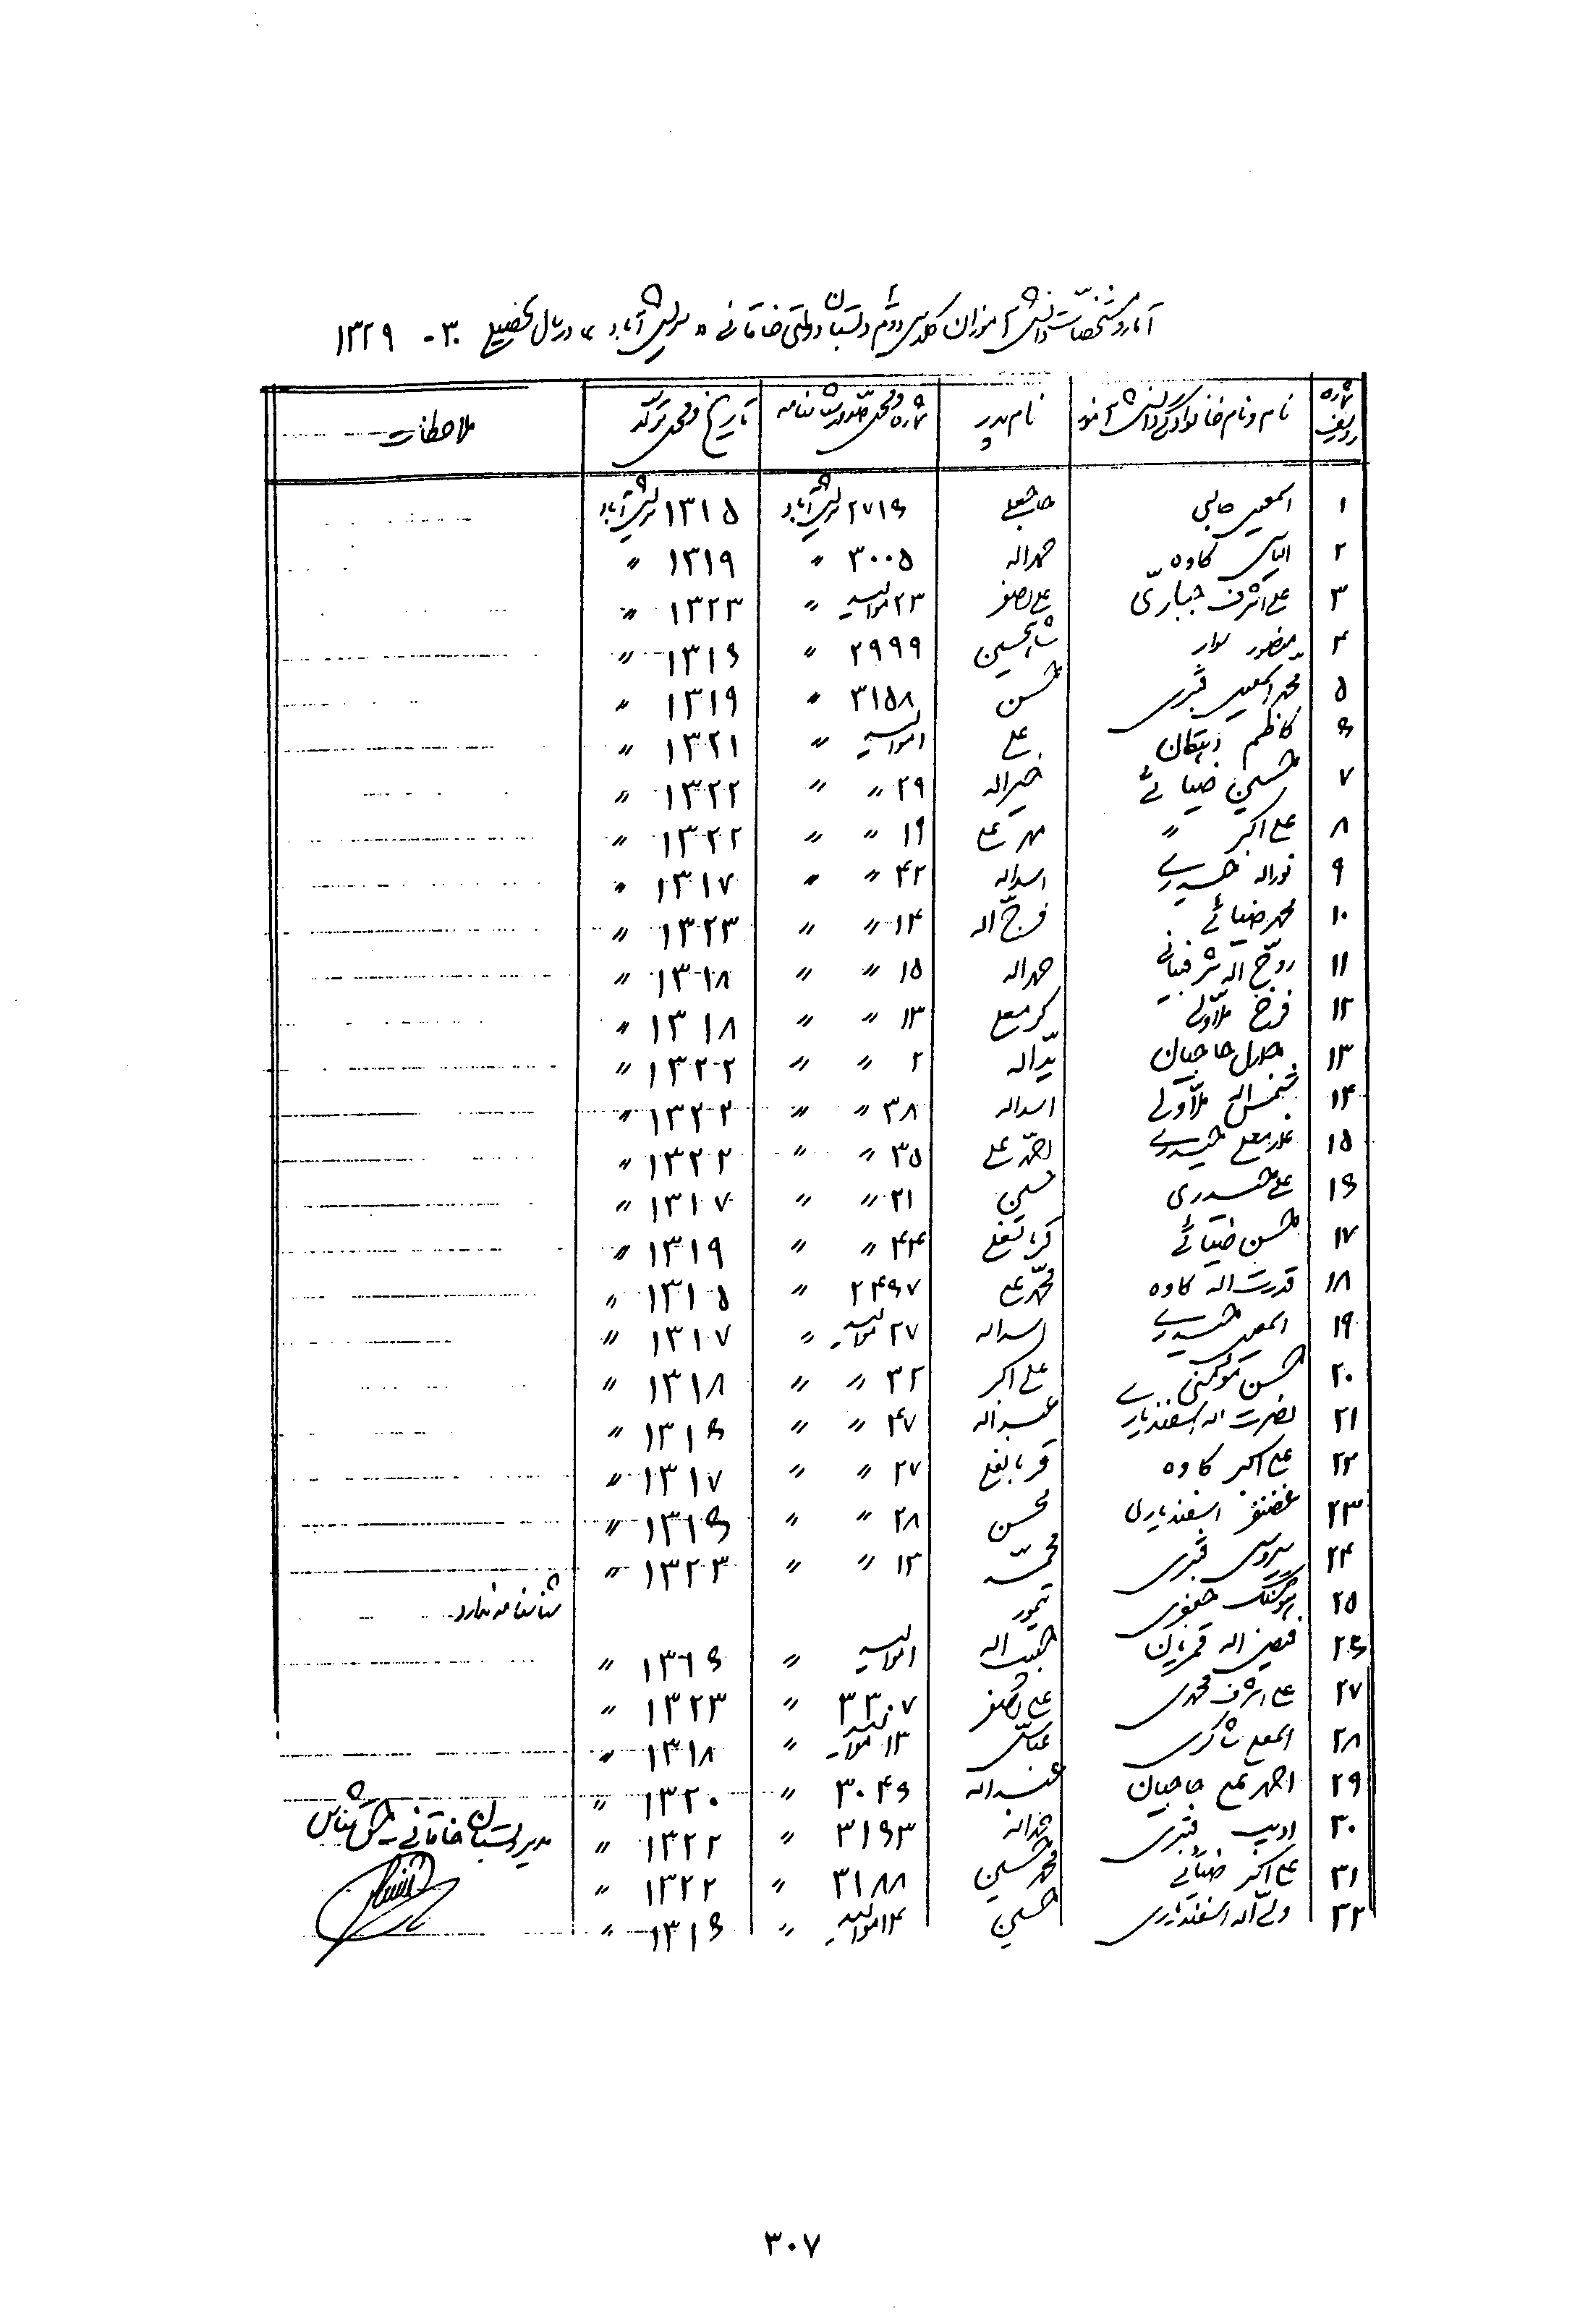 آمار و مشخصات دانش آموزان کلاس دوم دبستان دولتی خاقانی « سریش آباد » در سال تحصیلی ۳۰ - ۱۳۲۹
شماره ردیف نام و نام خانوادگی دانش آموز نام پدر شماره و محل صدور شناسنامه تاریخ و محل تولد ملاحظات
۱ اسمعیل حاجی حاجیعلی ۲۷۱۶ سریش آباد ۱۳۱۵ سریش آباد
۲ الیاس کاوه حمداله ۳۰۰۵ " ۱۳۱۹ "
۳ علی اشرف جباری علی اصغر ۲۳ موالید " ۱۳۲۳ "
۴ منصور سوار شاهحسین ۲۹۹۹ " ۱۳۱۶ "
۵ محمد اسمعیل قنبری حسن ۳۱۵۸ " ۱۳۱۹ "
۶ کاظم علی ۱ موالید " ۱۳۲۱ "
۷ حسین ضیائی خیراله ۲۹ " " ۱۳۲۲ "
۸ علی اکبر " مهرعلی ۱۹ " " ۱۳۲۲ "
۹ نوراله حیدری اسداله ۴۲ " " ۱۳۱۷ "
۱۰ محمد ضیائی فرج اله ۱۴ " " ۱۳۲۳ "
۱۱ روح اله شرفبیانی حمداله ۱۵ " " ۱۳۱۸ "
۱۲ فرخ ملاولی کرمعلی ۱۳ " " ۱۳۱۸ "
۱۳ جلال حاجیان یداله ۲ " " ۱۳۲۲ "
۱۴ شمس اله ملاولی اسداله ۳۸ " " ۱۳۲۲ "
۱۵ غلامعلی حیدری احمد علی ۳۵ " " ۱۳۲۲ "
۱۶ علی حیدری حسین ۲۱ " " ۱۳۱۷ "
۱۷ حسن ضیائی قربانعلی ۴۴ " " ۱۳۱۹ "
۱۸ قدرت اله کاوه محمد علی ۲۴۶۷ " ۱۳۱۵ "
۱۹ اسمعیل حیدری اسداله ۲۷ موالید " ۱۳۱۷ "
۲۰ حسن علی اکبر ۳۲ " " ۱۳۱۸ "
۲۱ نصرت اله اسفندیاری عبداله ۴۷ " " ۱۳۱۶ "
۲۲ علی اکبر کاوه قربانعلی ۲۷ " " ۱۳۱۷ "
۲۳ غضنفر اسفندیاری محسن ۲۸ " " ۱۳۱۶ "
۲۴ سیروس قنبری محمد ۱۲ " " ۱۳۲۳ "
۲۵ هوشنگ جعفری تیمور شناسنامه ندارد
۲۶ فیض اله قهرمان حبیب اله ۱ موالید " ۱۳۲۶ "
۲۷ علی اشرف محمدی علی اصغر ۳۳۰۷ " ۱۳۲۳ "
۲۸ اسمعیل شاکری عباس ۱۳ موالید " ۱۳۱۸ "
۲۹ احمد علی حاجیان عبداله ۳۰۴۶ " ۱۳۲۰ "
۳۰ ادیب قنبری حمداله ۳۱۶۳ " ۱۳۲۲ " مدیر دبستان خاقانی - حق شناس
۳۱ علی اکبر ضیائی محمد حسین ۳۱۸۸ " ۱۳۲۲ "
۳۲ ولی اله اسفندیاری حسین ۱۴ موالید " ۱۳۱۶ "
۳۰۷